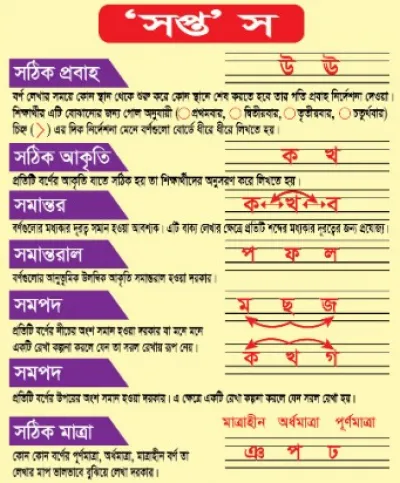 ‘সপ্ত’ স
সঠিক প্রবাহ
উ ঊ
বর্ণ লেখার সময়ে কোন স্থান থেকে শুরু করে কোন স্থানে শেষ করতে হবে তার গতি প্রবাহ নির্দেশনা দেওয়া।
শিক্ষার্থীর এটি বোঝানোর জন্য গোল অনুযায়ী (প্রথমবার, দ্বিতীয়বার, তৃতীয়বার, চতুর্থবার)
চিহ্ন (>) এর দিক নির্দেশনা মেনে বর্ণগুলো বোর্ডে ধীরে ধীরে লিখতে হয়।
সঠিক আকৃতি
ক খ
প্রতিটি বর্ণের আকৃতি যাতে সঠিক হয় তা শিক্ষার্থীদের অনুসরণ করে লিখতে হয়।
সমান্তর
ক খ ব
বর্ণগুলোর মধ্যকার দূরত্ব সমান হওয়া আবশ্যক। এটি বাক্য লেখার ক্ষেত্রে প্রতিটি শব্দের মধ্যকার দূরত্বের জন্য প্রযোজ্য।
সমান্তরাল
প ফ ল
বর্ণগুলোর আনুভূমিক উলম্বিক আকৃতি সমান্তরাল হওয়া দরকার।
সমপদ
ম ছ জ
প্রতিটি বর্ণের নীচের অংশ সমান হওয়া দরকার যা মনে মনে
একটি রেখা কল্পনা করলে যেন তা সরল রেখায় রূপ নেয়।
ক খ গ
সমপদ
প্রতিটি বর্ণের উপরের অংশ সমান হওয়া দরকার। এ ক্ষেত্রে একটি রেখা কল্পনা করলে যেন সরল রেখা হয়।
সঠিক মাত্রা
মাত্রাহীন অর্ধমাত্রা পূর্ণমাত্রা
ঞ প ঢ
কোন কোন বর্ণের পূর্ণমাত্রা, অর্ধমাত্রা, মাত্রাহীন বর্ণ তা
লেখার মাপ ভালভাবে বুঝিয়ে লেখা দরকার।